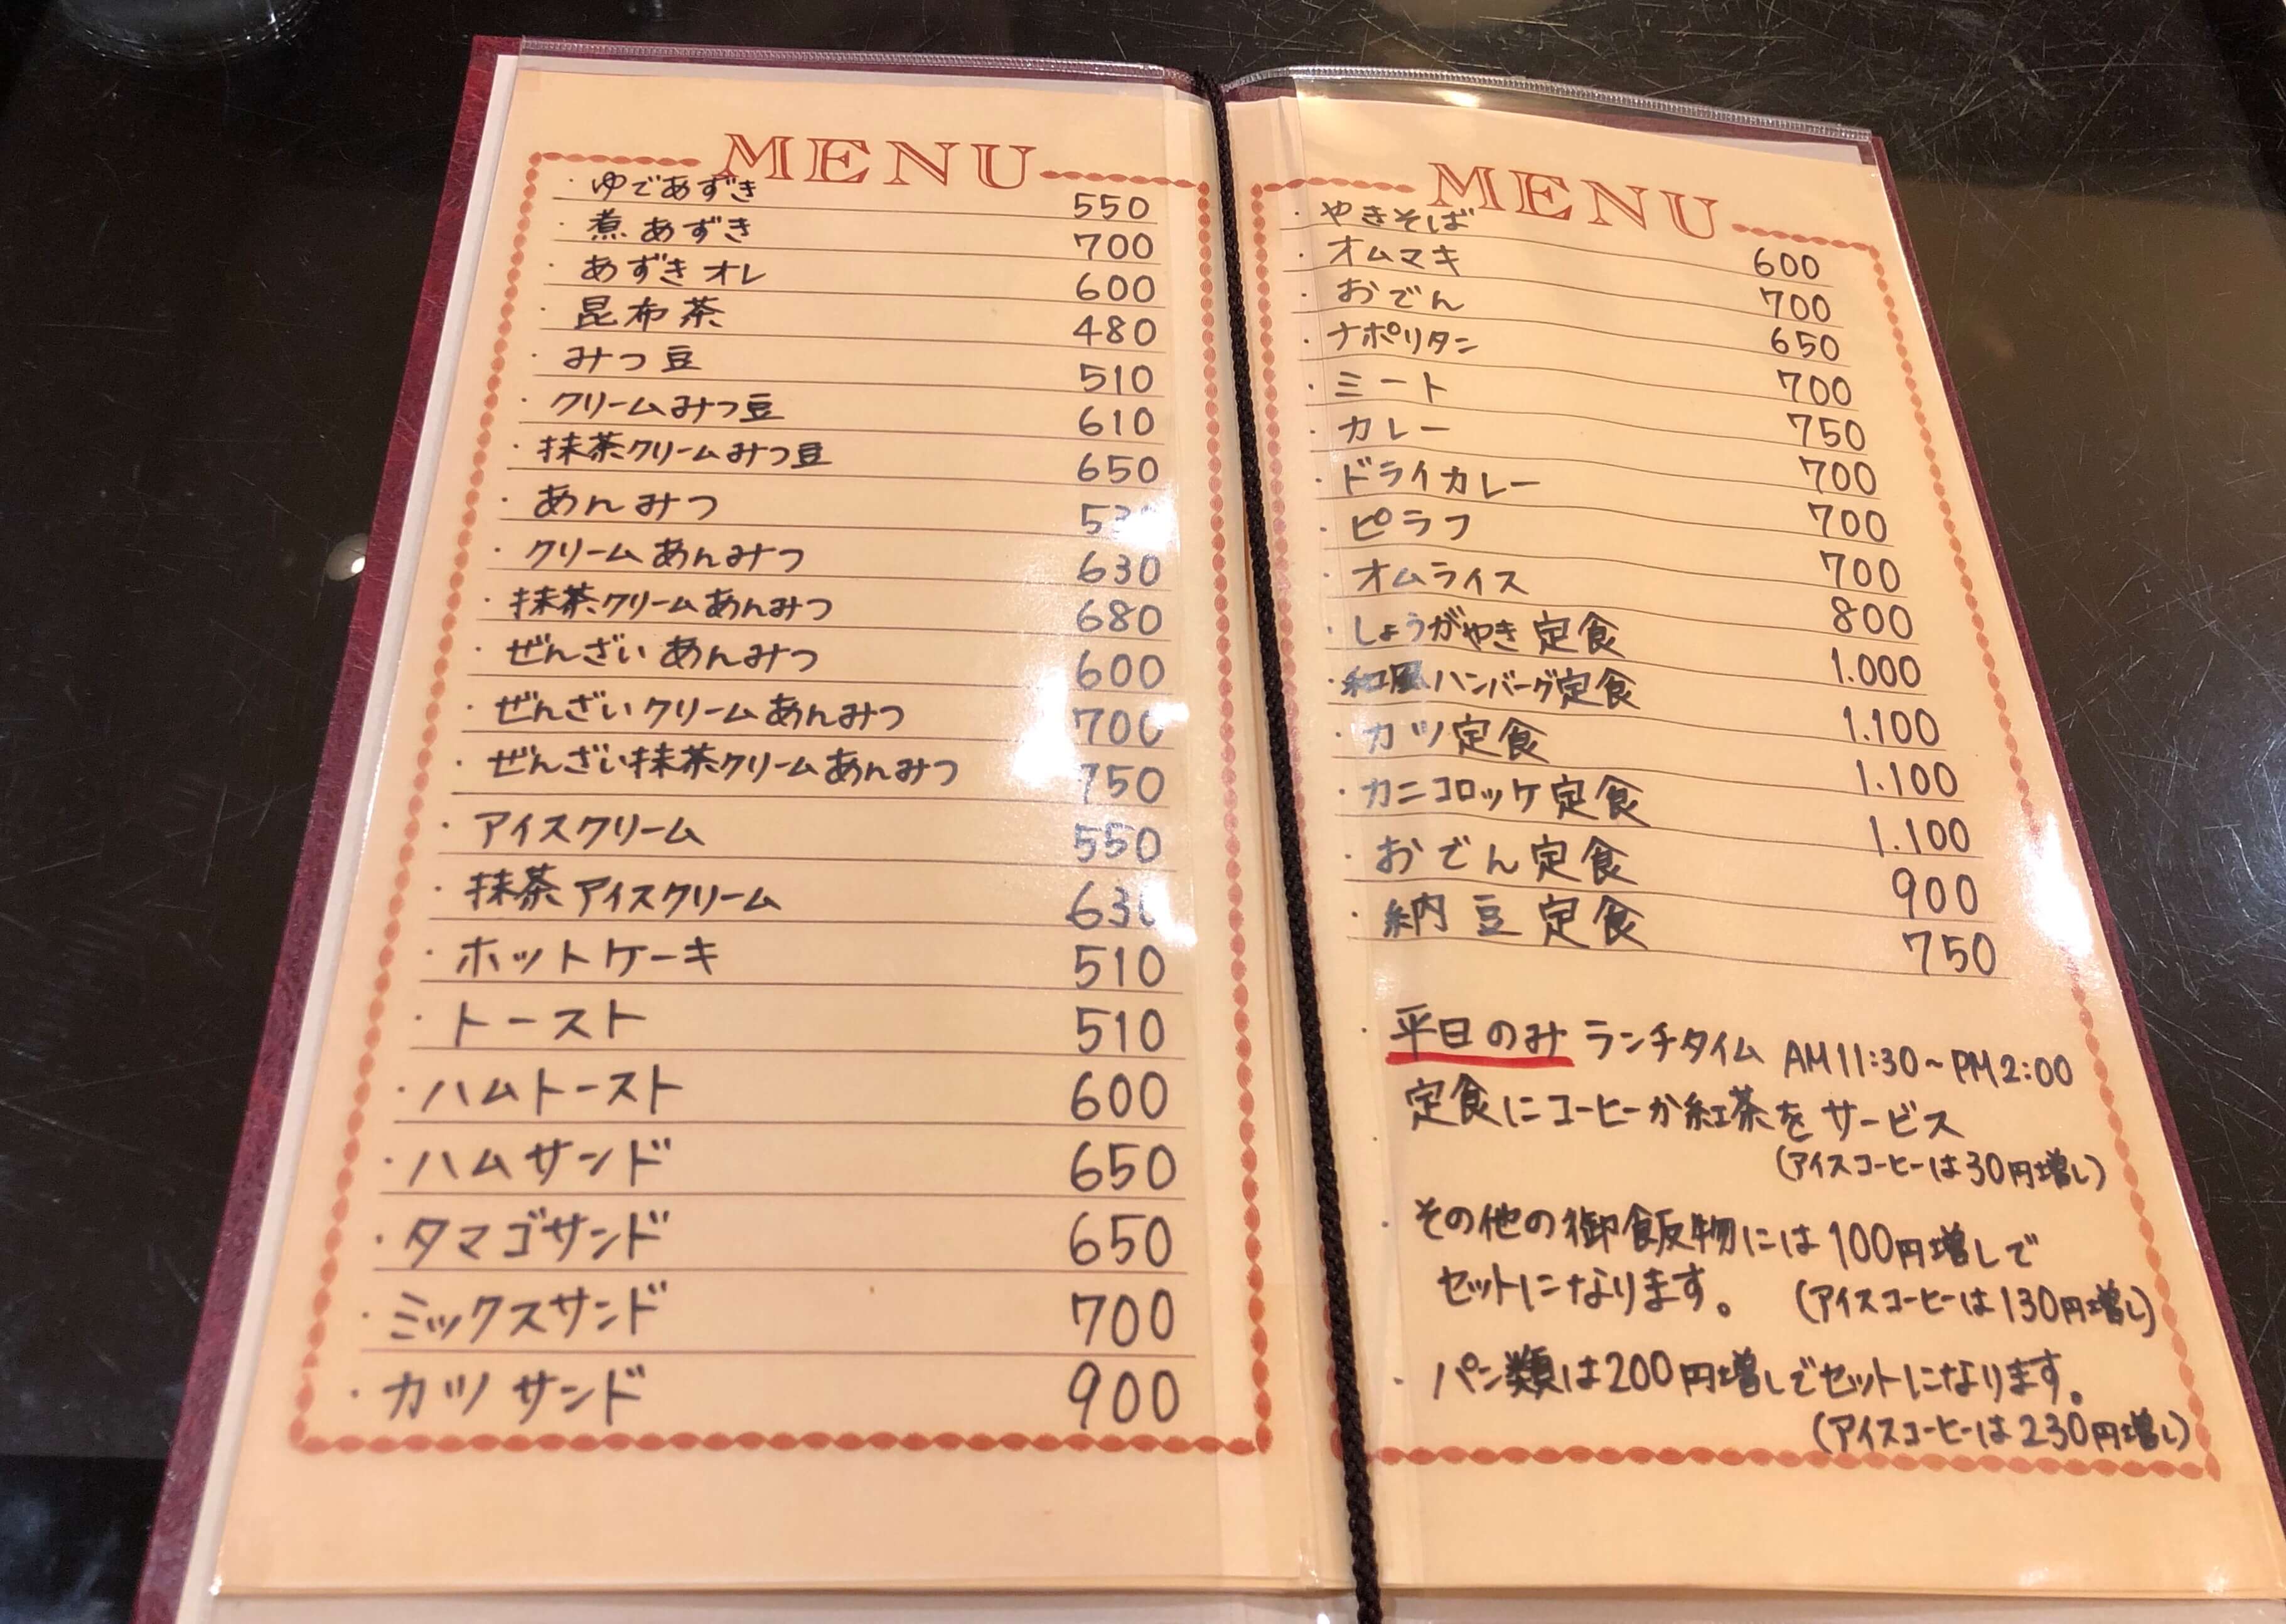 MENU
・ゆであずき 550
・煮あずき 700
・あずきオレ 600
・昆布茶 480
・みつ豆 510
・クリームみつ豆 610
・抹茶クリームみつ豆 650
・あんみつ
・クリームあんみつ 630
・抹茶クリームあんみつ 680
・ぜんざいあんみつ 600
・ぜんざいクリームあんみつ 700
・ぜんざい抹茶クリームあんみつ 750
・アイスクリーム 550
・抹茶アイスクリーム
・ホットケーキ 510
・トースト 510
・ハムトースト 600
・ハムサンド 650
・タマゴサンド 650
・ミックスサンド 700
・カツサンド 900
MENU
・やきそば 600
・オムマキ 700
・おでん 650
・ナポリタン 700
・ミート 750
・カレー 700
・ドライカレー 700
・ピラフ 700
・オムライス 800
・しょうがやき定食 1.000
・和風ハンバーグ定食 1.100
・カツ定食 1.100
・カニコロッケ定食 1.100
・おでん定食 900
・納豆定食 750
・平日のみ ランチタイム AM11:30~PM2:00
定食にコーヒーか紅茶をサービス
(アイスコーヒーは30円増し)
・その他の御飯物には100円増しで
セットになります。 (アイスコーヒーは130円増し)
・パン類は200円増しでセットになります。
(アイスコーヒーは230円増し)